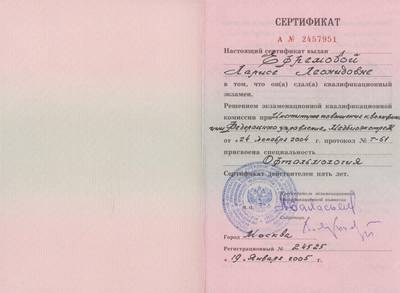 СЕРТИФИКАТ
А № 2457951
Настоящий сертификат выдан
Ефремовой
Ларисе Леонидовне
в том, что он(а) сдал(а) квалификационный
экзамен.
Решением экзаменационной квалификационной
комиссии при Институте повышения квалифика
ции Федерального управления Медбиоэкстрем
от «24 декабря 2004 г. протокол № Т-61
присвоена специальность
Офтальмология
Сертификат действителен пять лет.
Председатель экзаменационной
квалификационной комиссии
М. П.
Секретарь
Город Москва
Регистрационный № 24525
«19 Января 2005 г.